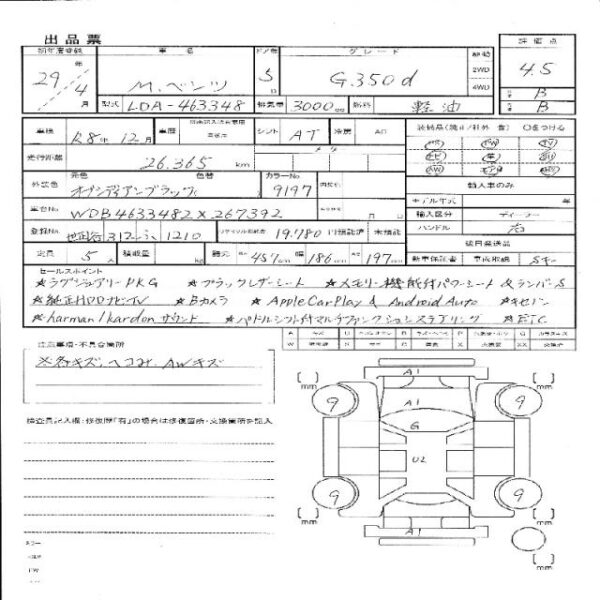 出品票
初年度登録 車名 ドア数 グレード 駆動 評価点
29年 4月 M.ベンツ 5 G350d 2WD 4WD 4.5
B
B
型式 LDA-463348 排気量 3000cc 燃料 軽油
車検 R8年12月 車歴 シフト AT 冷房 AC
走行距離 26.365 km
外装色 元色 色替 カラーNo
オブシディアンブラック 9197
輸入車のみ
モデル年式 年
車台No WDB4633482X267392
輸入区分 ディーラー
ハンドル 右
登録No 1210 リサイクル預託金 19.780円 預託済 未預託
定員 5人 積載量 kg 諸元 長457cm 幅186cm 高197cm
新車保証書
セールスポイント
★ラグジュアリーPKG ★ブラックレザーシート ★メモリー機能付パワーシート&ランバーS
★純正HDDナビ・TV ★Bカメラ ★Apple CarPlay & Android Auto ★キセノン
★harman/kardonサウンド ★パドルシフト付マルチファンクションステアリング ★ETC
注意事項・不具合箇所
※各キズ、ヘコみ、AWキズ
検査員記入欄:修復歴「有」の場合は修復箇所・交換箇所を記入
[ ] mm A1 [ ] mm
9 A1 9
G
U2
9 9
[ ] mm A1 [ ] mm